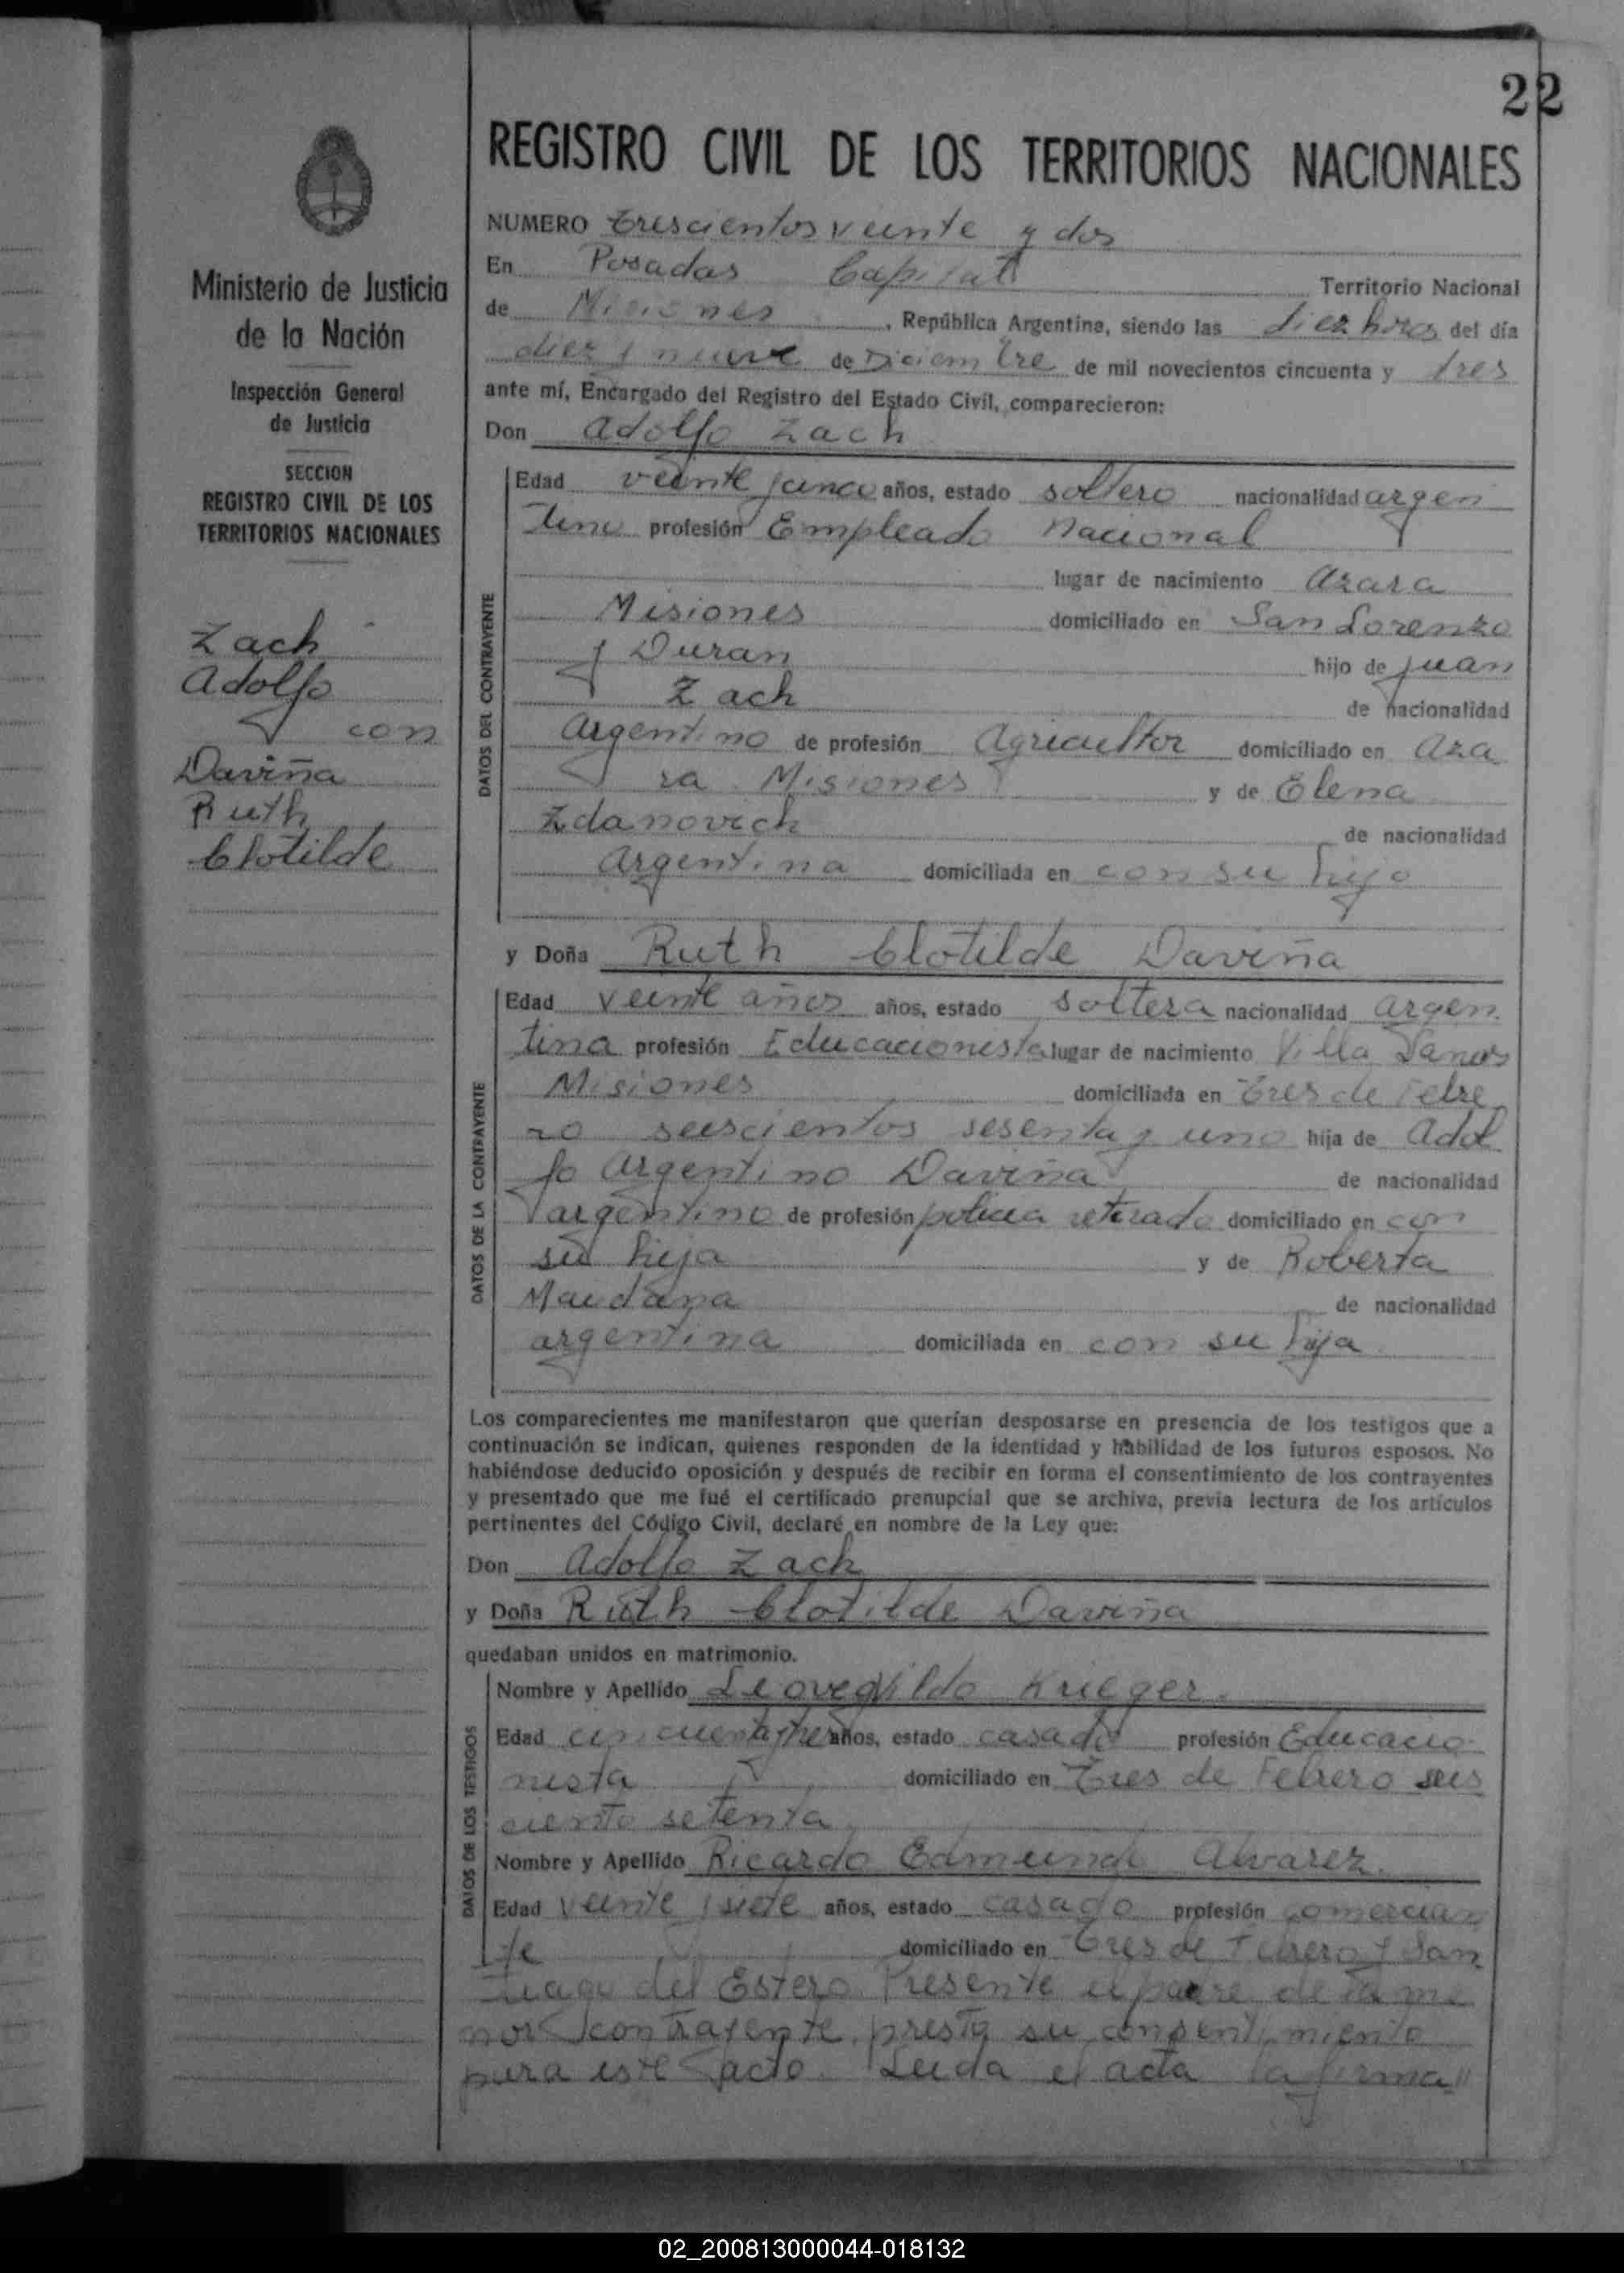 22
REGISTRO CIVIL DE LOS TERRITORIOS NACIONALES
Ministerio de Justicia
de la Nación
Inspección General
de Justicia
SECCION
REGISTRO CIVIL DE LOS
TERRITORIOS NACIONALES
Zach
Adolfo
con
Daviña
Ruth
Clotilde
NUMERO trescientos veinte y dos
En Posadas Capital Territorio Nacional
de Misiones, República Argentina, siendo las diez horas del día
diez y nueve de Diciembre de mil novecientos cincuenta y tres
ante mí, Encargado del Registro del Estado Civil, comparecieron:
Don Adolfo Zach
DATOS DEL CONTRAYENTE
Edad veinte y cinco años, estado soltero nacionalidad argen
tino profesión Empleado Nacional
lugar de nacimiento Azara
Misiones domiciliado en San Lorenzo
y Duran hijo de Juan
Zach de nacionalidad
Argentino de profesión Agricultor domiciliado en Aza
ra Misiones y de Elena
Zdanovich de nacionalidad
Argentina domiciliada en con su hijo
y Doña Ruth Clotilde Daviña
DATOS DE LA CONTRAYENTE
Edad veinte años años, estado soltera nacionalidad argen
tina profesión Educacionista lugar de nacimiento Villa
Misiones domiciliada en Tres de Febre
ro seiscientos sesenta y uno hija de Adol
fo Argentino Daviña de nacionalidad
argentino de profesión policia retirado domiciliado en con
su hija y de Roberta
Maidana de nacionalidad
argentina domiciliada en con su hija
Los comparecientes me manifestaron que querían desposarse en presencia de los testigos que a
continuación se indican, quienes responden de la identidad y habilidad de los futuros esposos. No
habiéndose deducido oposición y después de recibir en forma el consentimiento de los contrayentes
y presentado que me fué el certificado prenupcial que se archiva, previa lectura de los artículos
pertinentes del Código Civil, declaré en nombre de la Ley que:
Don Adolfo Zach
y Doña Ruth Clotilde Daviña
quedaban unidos en matrimonio.
DATOS DE LOS TESTIGOS
Nombre y Apellido Leovegildo Krieger
Edad cincuenta y tres años, estado casado profesión Educacio
nista domiciliado en Tres de Febrero seis
ciento setenta
Nombre y Apellido Ricardo Edmundo Alvarez
Edad veinte y siete años, estado casado profesión comercian
te domiciliado en Tres de Febrero y San
tiago del Estero. Presente el padre de la me
nor contrayente presta su consentimiento
para este acto. Leida el acta la firma
02_200813000044-018132